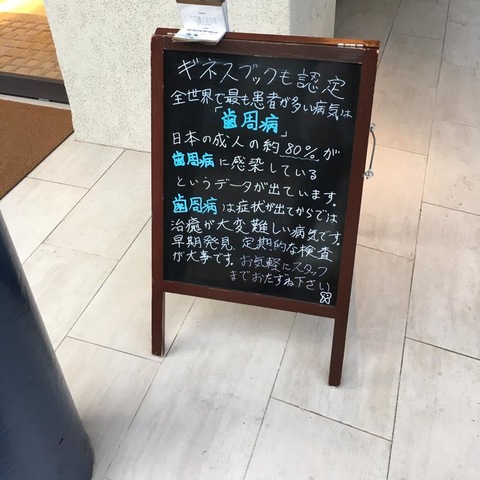 ギネスブックも認定
全世界で最も患者が多い病気は
「歯周病」
日本の成人の約80%が
歯周病に感染している
というデータが出ています。
歯周病は症状が出てからでは
治癒が大変難しい病気です。
早期発見、定期的な検査
が大事です。お気軽にスタッフ
までおたずね下さい